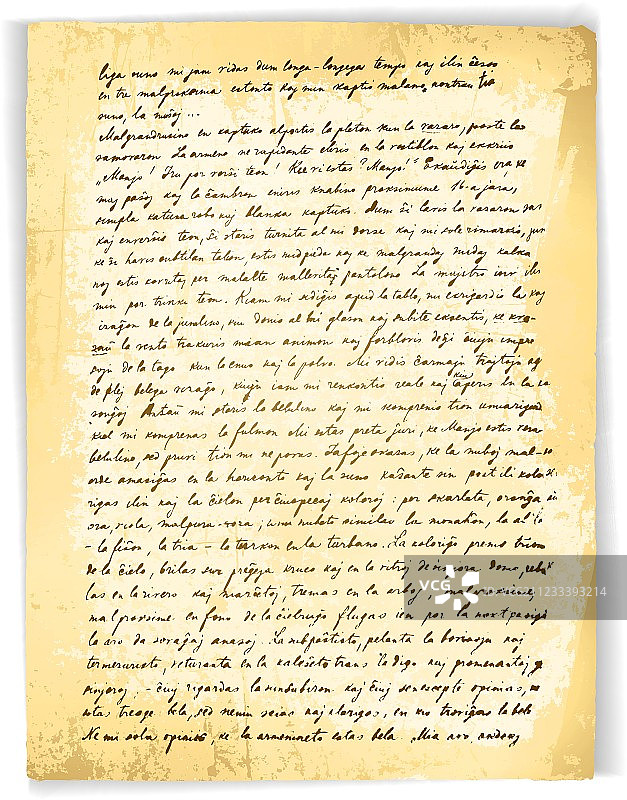 liga suno mi jam vidas dum longa-longega tempo kaj ilin ĉesos
en tre malproksima estonto kaj min kaptis malamo kontraŭ tio
suno, la muŝoj ...
Malgrandrusino en kaptuko alportis la pleton kun la vazaro, poste la
samovaron. La armeno ne rapidante eliris en la vestiblon kaj ekkriis
"Manjo! Iru por verŝi teon! Kie vi estas? Manjo!" Ekaŭdiĝis
paŝoj kaj la ĉambron eniris knabino proksimume 16-a jara,
simpla katuna robo kaj blanka kaptuko. Dum ŝi lavis la vazaron
kaj enverŝis teon, ŝi staris turnita al mi dorse kaj mi sole rimarkis,
ke ŝi havis subtilan talion, estis nudpieda kaj ke malgrandaj nudaj kalka
noj estis kovritaj per malalte mallevitaj pantalono. La mastro invitis
min por trinki teon. Kiam mi sidiĝis apud la tablo, mi ekrigardis la
vizaĝon de la junulino, kiu donis al mi glason kaj subite eksentis, ke kva-
zaŭ la vento trakuris mian animon kaj forblovis de ĝi ĉiujn impre
sojn de la tago kun la enuo kaj la polvo. Mi vidis ĉarmajn trajtojn
de plej belega vizaĝo, kiujn iam mi renkontis reale kaj kiu aperis en la
sonĝoj. Antaŭ mi staris la belulino kaj mi komprenis tion unuarigarde
kiel mi komprenas la fulmon. Mi estas preta ĵuri, ke Manjo estis vera
belulino, sed pruvi tion mi ne povas. Iafoje okazas, ke la nuboj mal-
orde amasiĝas en la horizonto kaj la suno kaŝante sin post ili kolo
rigas ilin kaj la ĉielon per ĉiuspecaj koloroj: per skarlata, oranĝa
ora, viola, malpura-roza; unu nubeto similas la monaĥon, la alia
- la fiŝon, la tria - la turkon en la turbano. La koloriĝo prenis trionon
de la ĉielo, brilas sur preĝeja kruco kaj en la vitroj de sinjora domo, rebri
las en la rivero kaj marĉetoj, tremas en la arboj; malproksime
malproksime en fono de la ĉielruĝo flugas ien por la noktpasigo
la aro da sovaĝaj anasoj. La subpaŝtisto, pelanta la bovinojn kaj
termezuristo, veturanta en la kaleŝeto trans la digo kaj promenantaj
sinjoroj, - ĉiuj rigardas la sunsubiron kaj ĉiuj senescepte opinias, ke
estas treege bela, sed neniu scias kaj klarigos, en kio troviĝas la belo
Ne mi sola opiniis, ke la armenineto estas bela. Mia avo,
VCG
1233393214